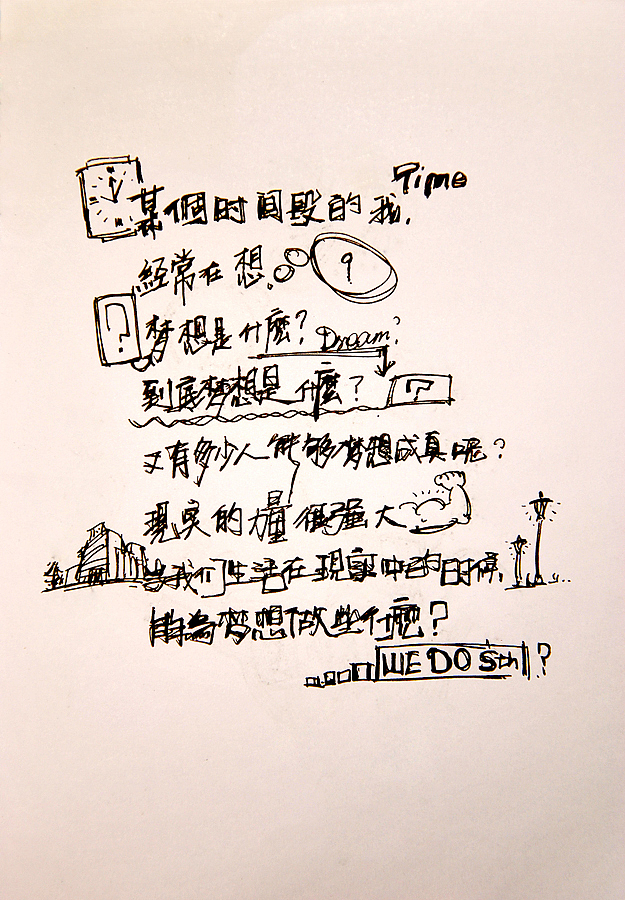 Time
某個时间段的我.
經常在想.
?
?
梦想是什麼? Dream?
到底梦想是什麼? ?
又有多少人能够梦想成真呢?
現实的力量很强大
当我们生活在現實中的时候,
能為梦想做些什麼?
WE DO Sth ?